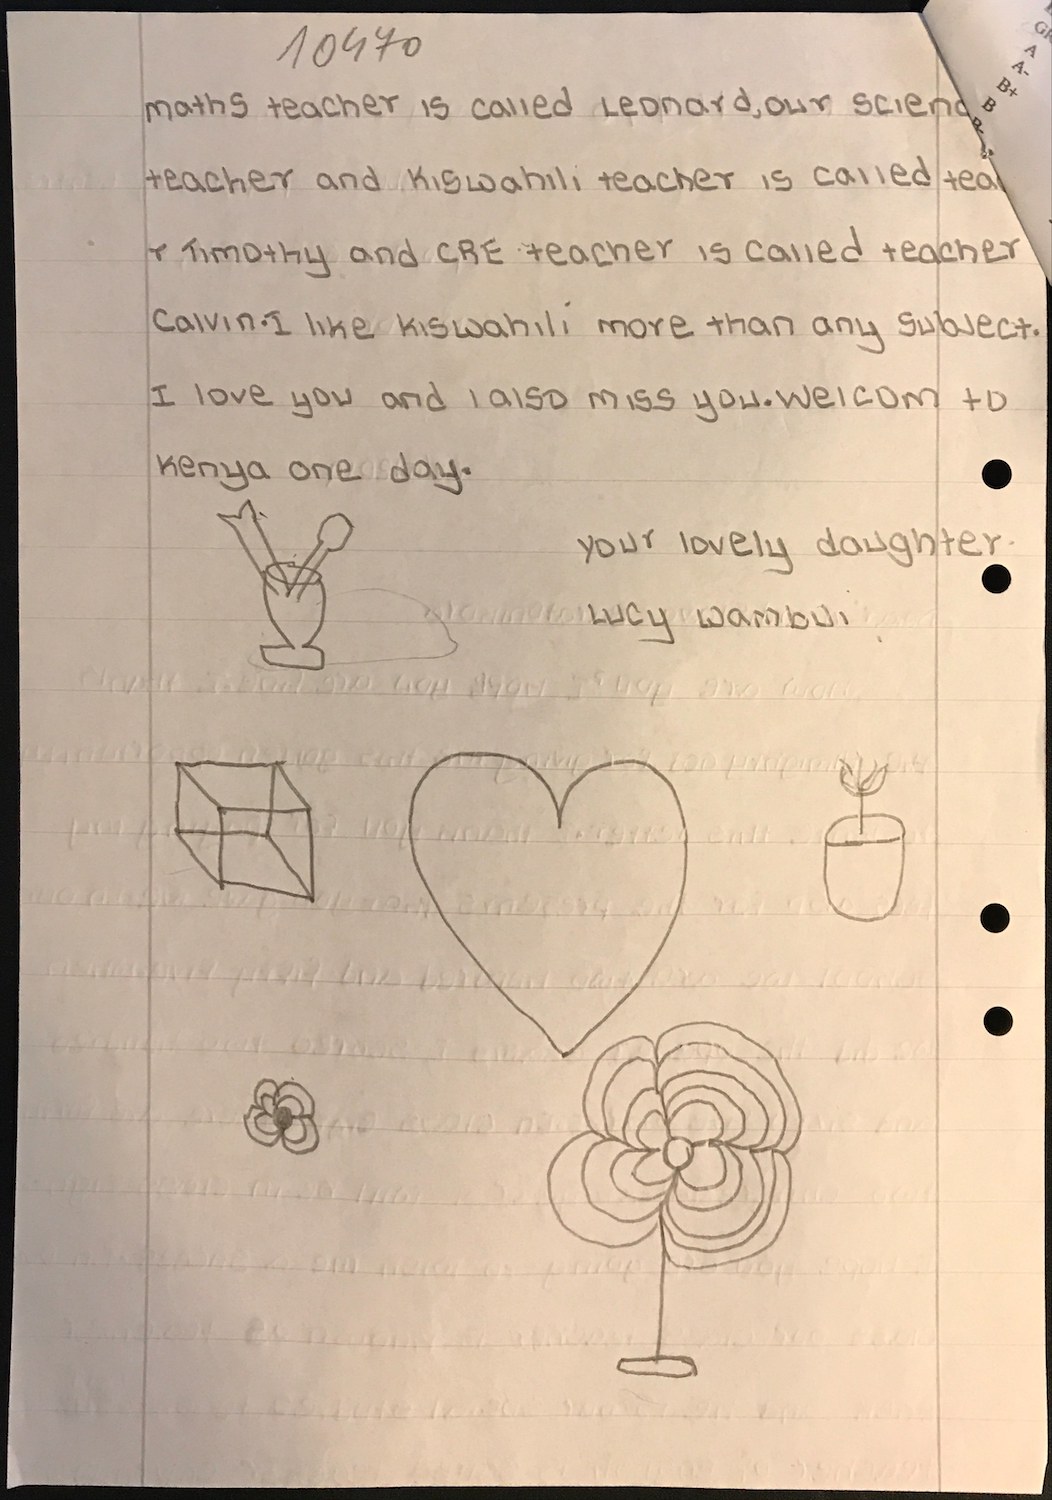 10470
maths teacher is called Leonard,our scienc
teacher and kiswahili teacher is called tea
r Timothy and CRE teacher is called teacher
Calvin.I like kiswahili more than any subject.
I love you and I also miss you.Welcom to
Kenya one day.
your lovely daughter.
Lucy Wambui
A
A-
B+
B